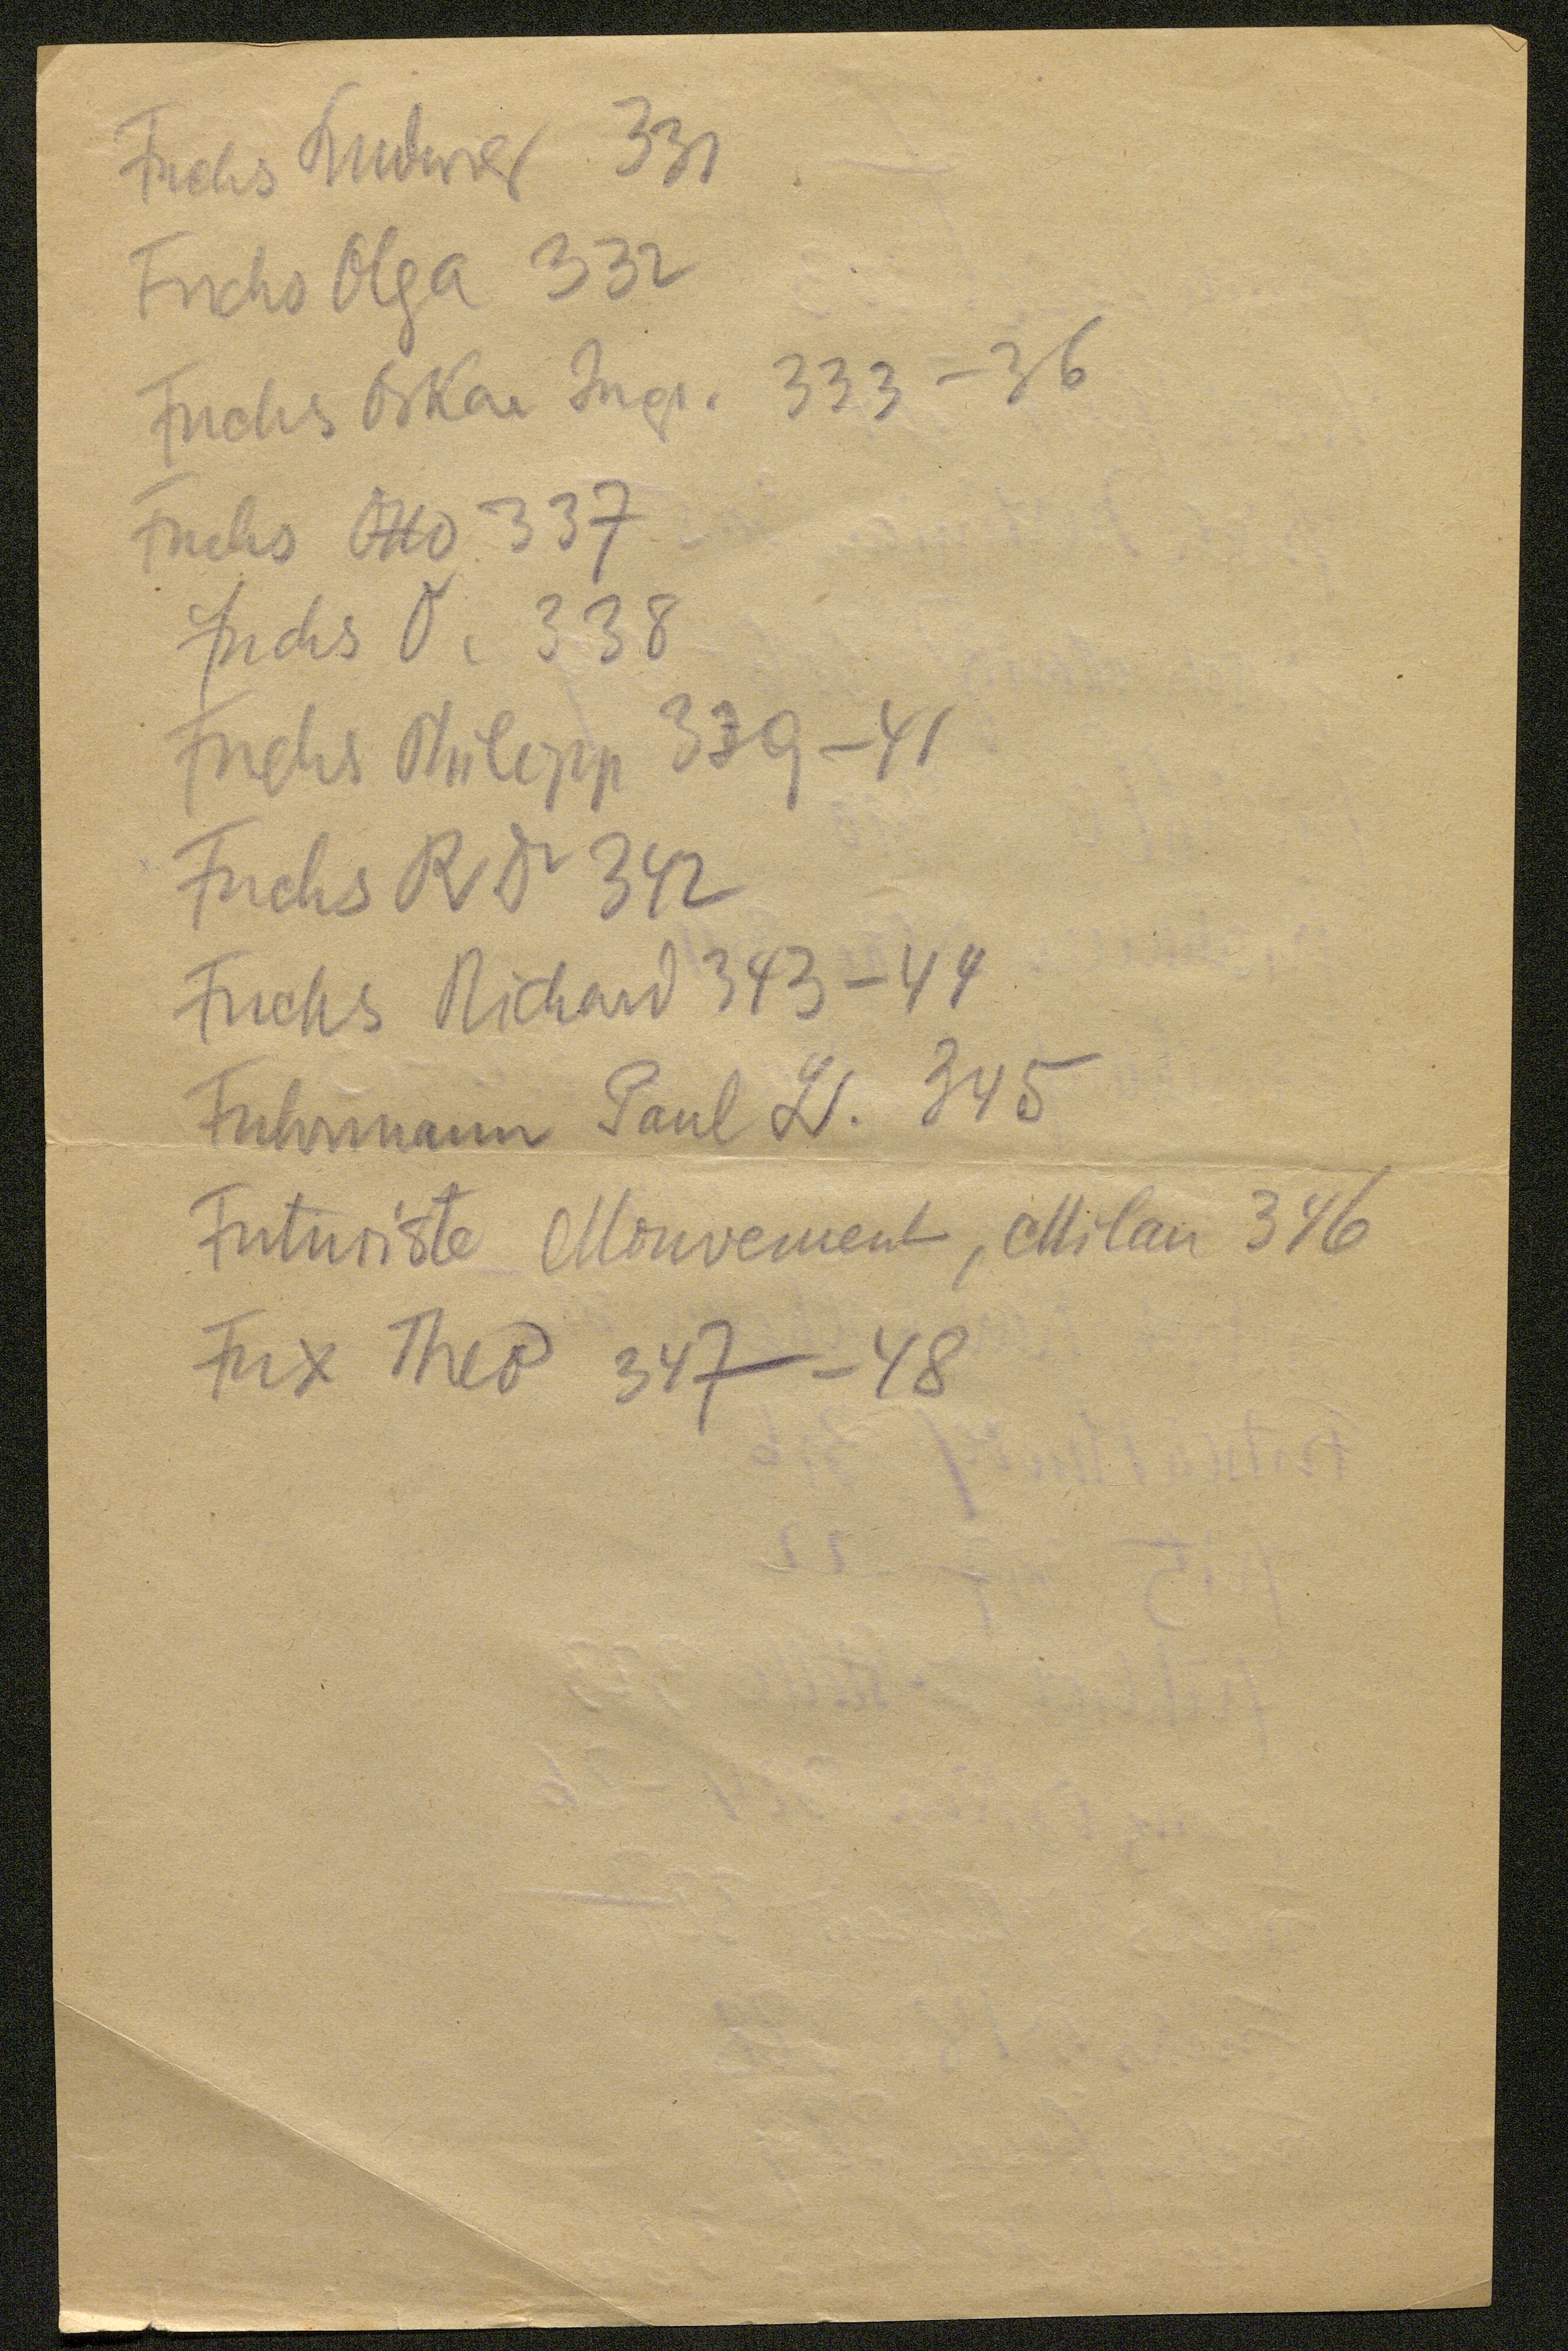 Fuchs Ludwig 331
Fuchs Olga 332
Fuchs Oskar Ingr. 333-36
Fuchs Otto 337
Fuchs O. 338
Fuchs Philipp 339-41
Fuchs R Dr 342
Fuchs Richard 343-44
Fuhrmann Paul L. 345
Futuriste Mouvement, Milan 346
Fux Theo 347-48